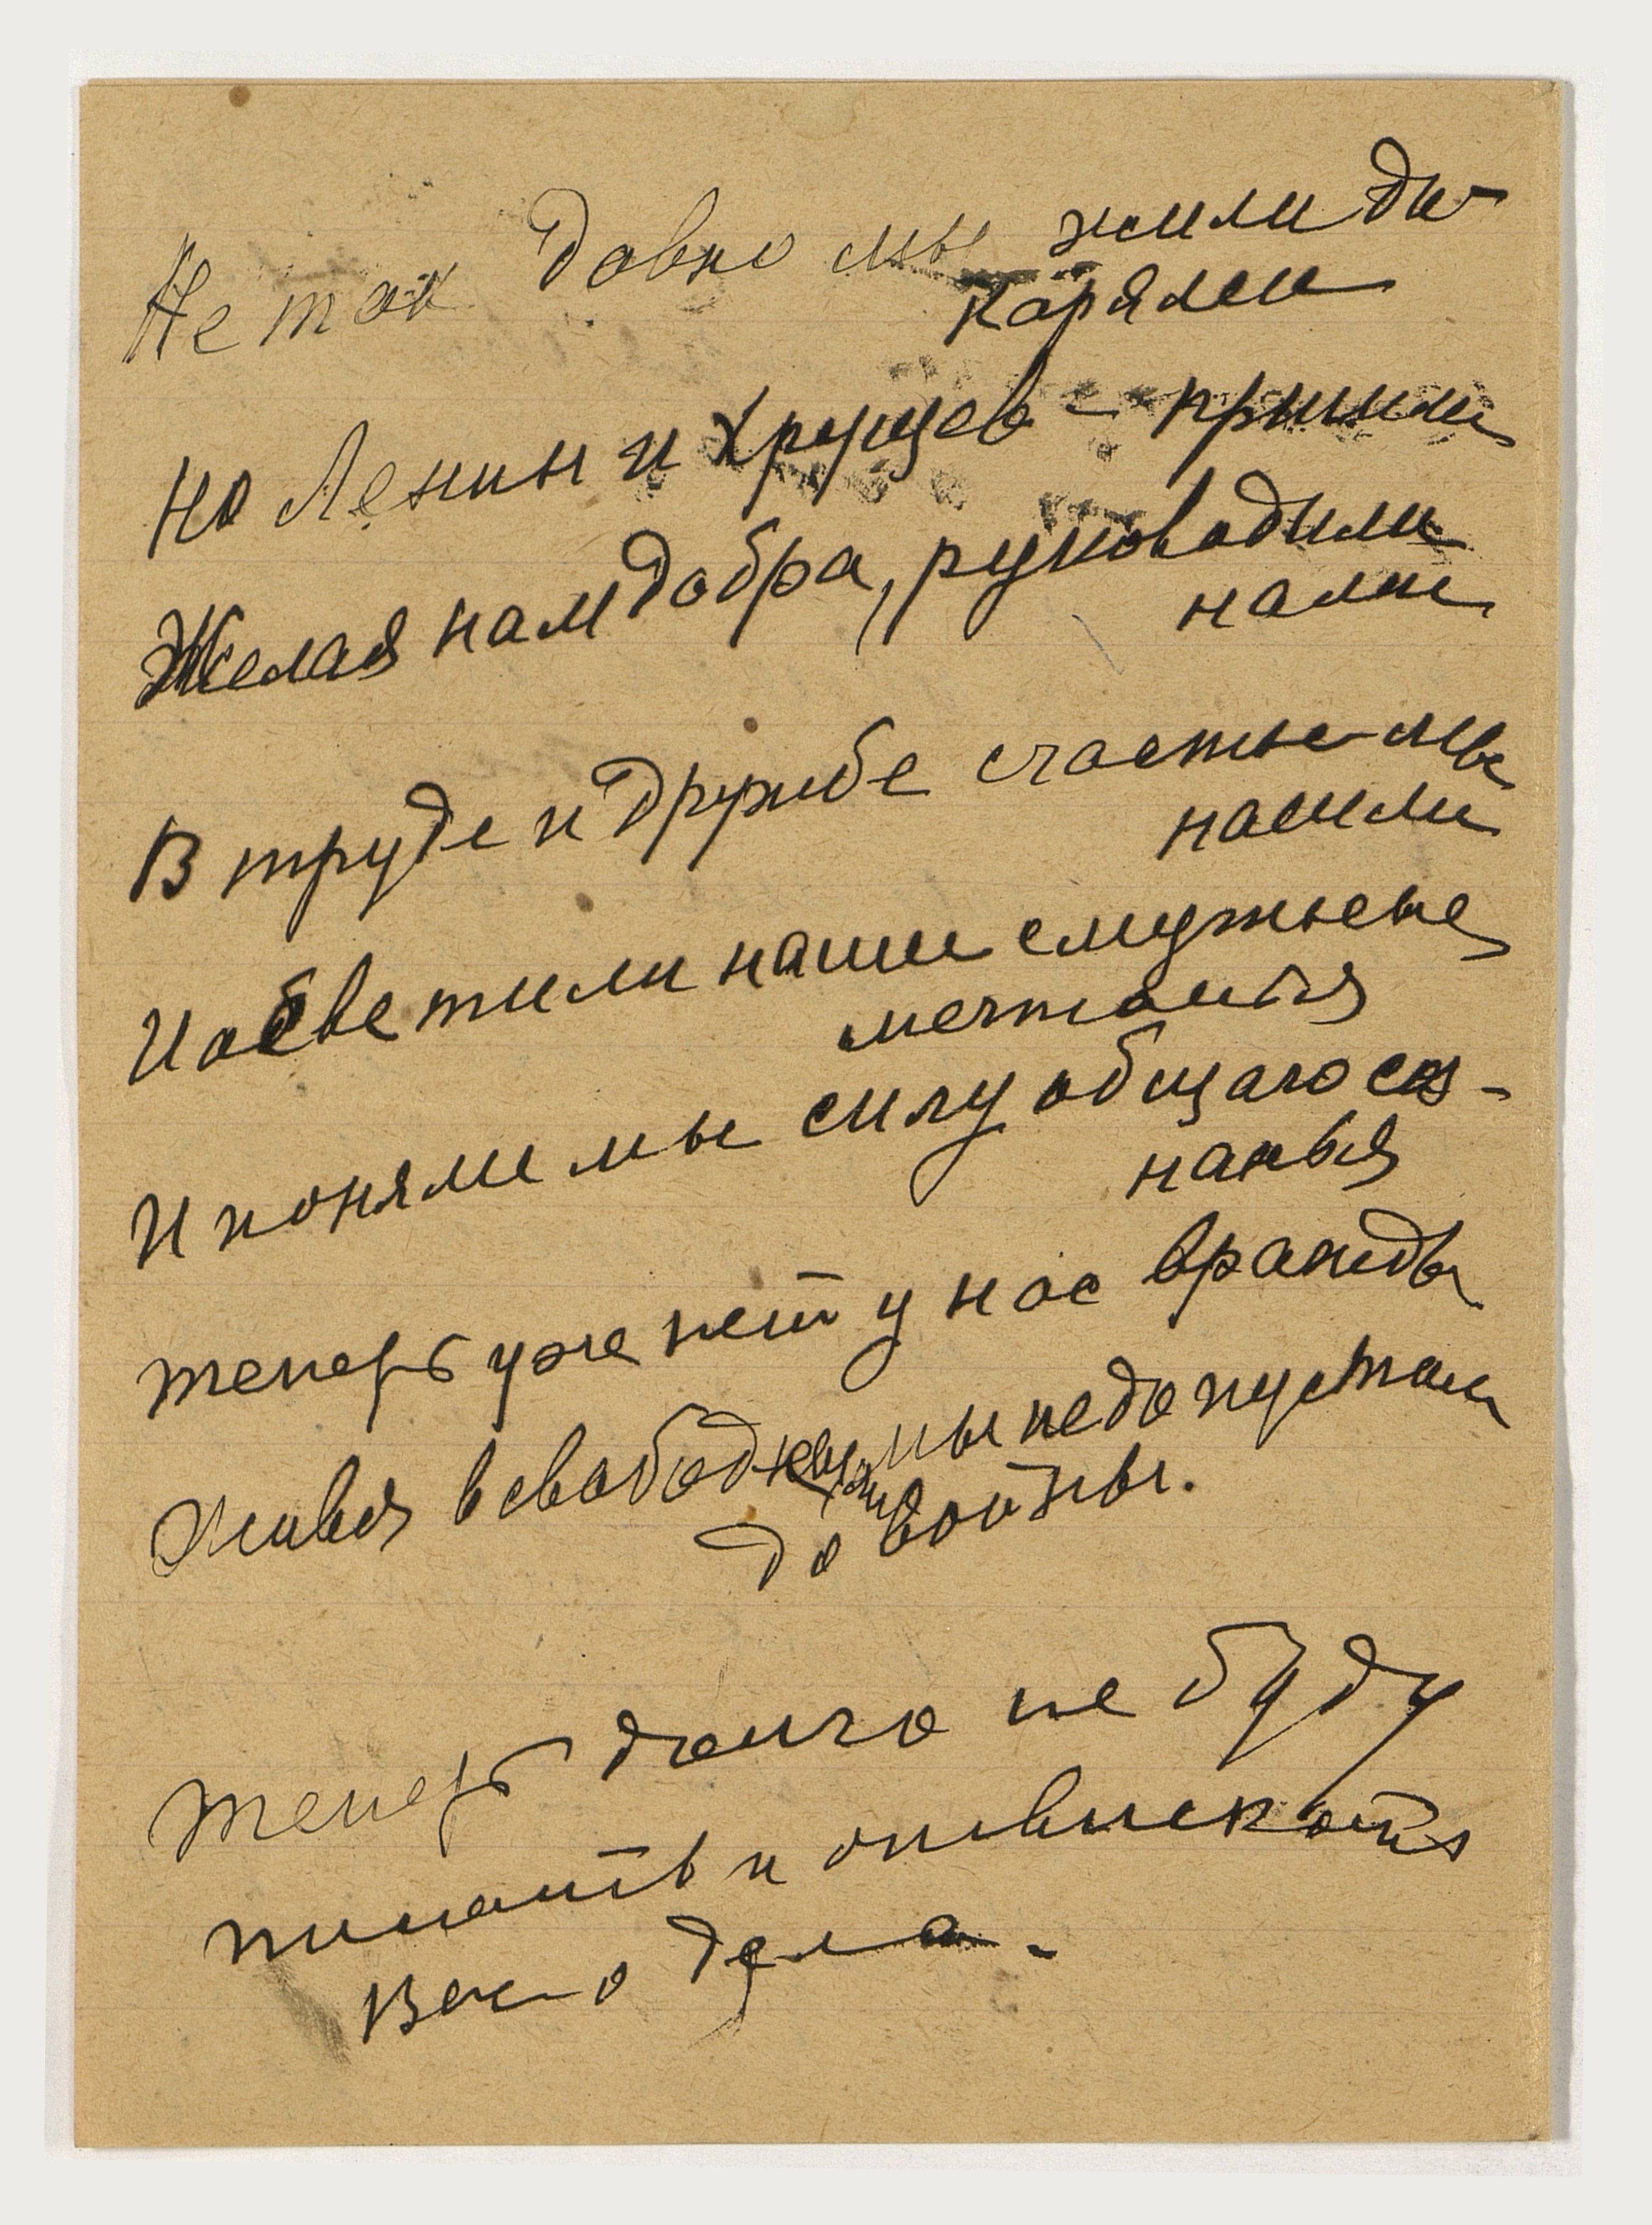 Не так давно мы жили ди-
карями
Но Ленин и Хрущев - пришли
Желая нам добра, руководили
нами
В труде и дружбе счастье мы
нашли
И осветили наши смутные
мечтанья
И поняли мы силу общаго соз-
нанья
теперь уже нет у нас вражды
Живя в свободе мы не допустим
до войны.
теперь долго не буду
писать и отвлекать
Вас о дела.